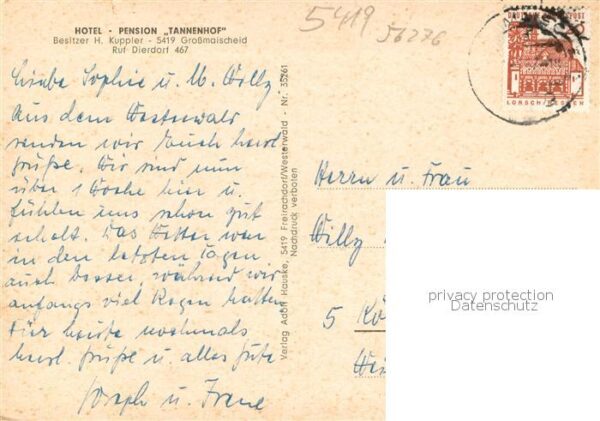 HOTEL - PENSION „TANNENHOF"
Besitzer H. Kuppler - 5419 Großmaischeid
Ruf Dierdorf 467
5419
56276
Liebe Sophie u. Willy
Aus dem Westerwald
senden wir Euch herzl.
Grüße. Wir sind nun
über 1 Woche hier u.
fühlen uns schon gut
erholt. Das Wetter war
in den letzten Tagen
auch besser, während wir
anfangs viel Regen hatten
Für heute nochmals
herzl. Grüße u. alles Gute
Joseph u. Irene
Verlag Adolf Hauske, 5419 Freirachdorf/Westerwald - Nr. 35261
Nachdruck verboten
DEUTSCHE BUNDESPOST
LORSCH/HESSEN
Herrn u. Frau
Willy
5 Kö
privacy protection
Datenschutz